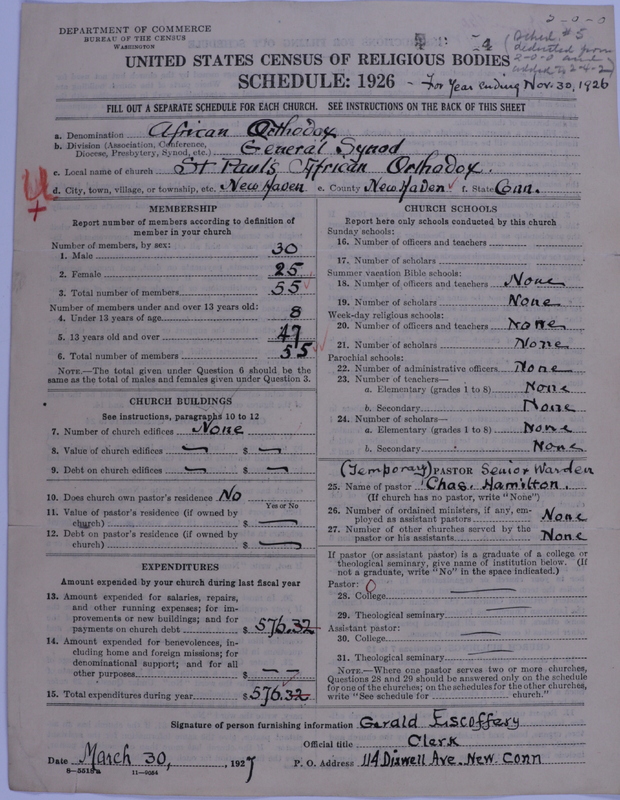 2-0-0
DEPARTMENT OF COMMERCE
BUREAU OF THE CENSUS
WASHINGTON
4
(Sched. #5
deducted from
2-0-0 and
added to 2-4-2)
UNITED STATES CENSUS OF RELIGIOUS BODIES
SCHEDULE: 1926 - For Year ending Nov. 30, 1926
FILL OUT A SEPARATE SCHEDULE FOR EACH CHURCH. SEE INSTRUCTIONS ON THE BACK OF THIS SHEET
a. Denomination African Orthodox
b. Division (Association, Conference, Diocese, Presbytery, Synod, etc.) General Synod
c. Local name of church St Pauls African Orthodox.
d. City, town, village, or township, etc. New Haven e. County New Haven f. State Conn.
MEMBERSHIP
Report number of members according to definition of
member in your church
Number of members, by sex:
1. Male 30
2. Female 25
3. Total number of members 55
Number of members under and over 13 years old:
4. Under 13 years of age 8
5. 13 years old and over 47
6. Total number of members 55
NOTE.—The total given under Question 6 should be
same as the total of males and females given under Question 3.
CHURCH BUILDINGS
See instructions, paragraphs 10 to 12
7. Number of church edifices None
8. Value of church edifices — $ —
9. Debt on church edifices — $ —
10. Does church own pastor's residence No
Yes or No
11. Value of pastor's residence (if owned by
church) $ —
12. Debt on pastor's residence (if owned by
church) $ —
EXPENDITURES
Amount expended by your church during last fiscal year
13. Amount expended for salaries, repairs,
and other running expenses; for im-
provements or new buildings; and for
payments on church debt $ 576.32
14. Amount expended for benevolences, in-
cluding home and foreign missions; for
denominational support; and for all
other purposes $ — —
15. Total expenditures during year $ 576.32
CHURCH SCHOOLS
Report here only schools conducted by this church
Sunday schools:
16. Number of officers and teachers
17. Number of scholars
Summer vacation Bible schools:
18. Number of officers and teachers None
19. Number of scholars None
Week-day religious schools:
20. Number of officers and teachers None
21. Number of scholars None
Parochial schools:
22. Number of administrative officers None
23. Number of teachers—
a. Elementary (grades 1 to 8) None
b. Secondary None
24. Number of scholars—
a. Elementary (grades 1 to 8) None
b. Secondary None
(Temporary) PASTOR Senior Warden
25. Name of pastor Chas. Hamilton.
(If church has no pastor, write "None")
26. Number of ordained ministers, if any, em-
ployed as assistant pastors None
27. Number of other churches served by the
pastor or his assistants None
If pastor (or assistant pastor) is a graduate of a college or
theological seminary, give name of institution below. (If
not a graduate, write "No" in the space indicated.)
Pastor: 0
28. College —
29. Theological seminary —
Assistant pastor:
30. College —
31. Theological seminary —
NOTE.—Where one pastor serves two or more churches,
Questions 28 and 29 should be answered only on the schedule
for one of the churches; on the schedules for the other churches,
write "See schedule for church."
Signature of person furnishing information Gerald Escoffery
Official title Clerk
Date March 30, 1927 P. O. Address 114 Dixwell Ave. New. Conn
8-5518a 11-9084